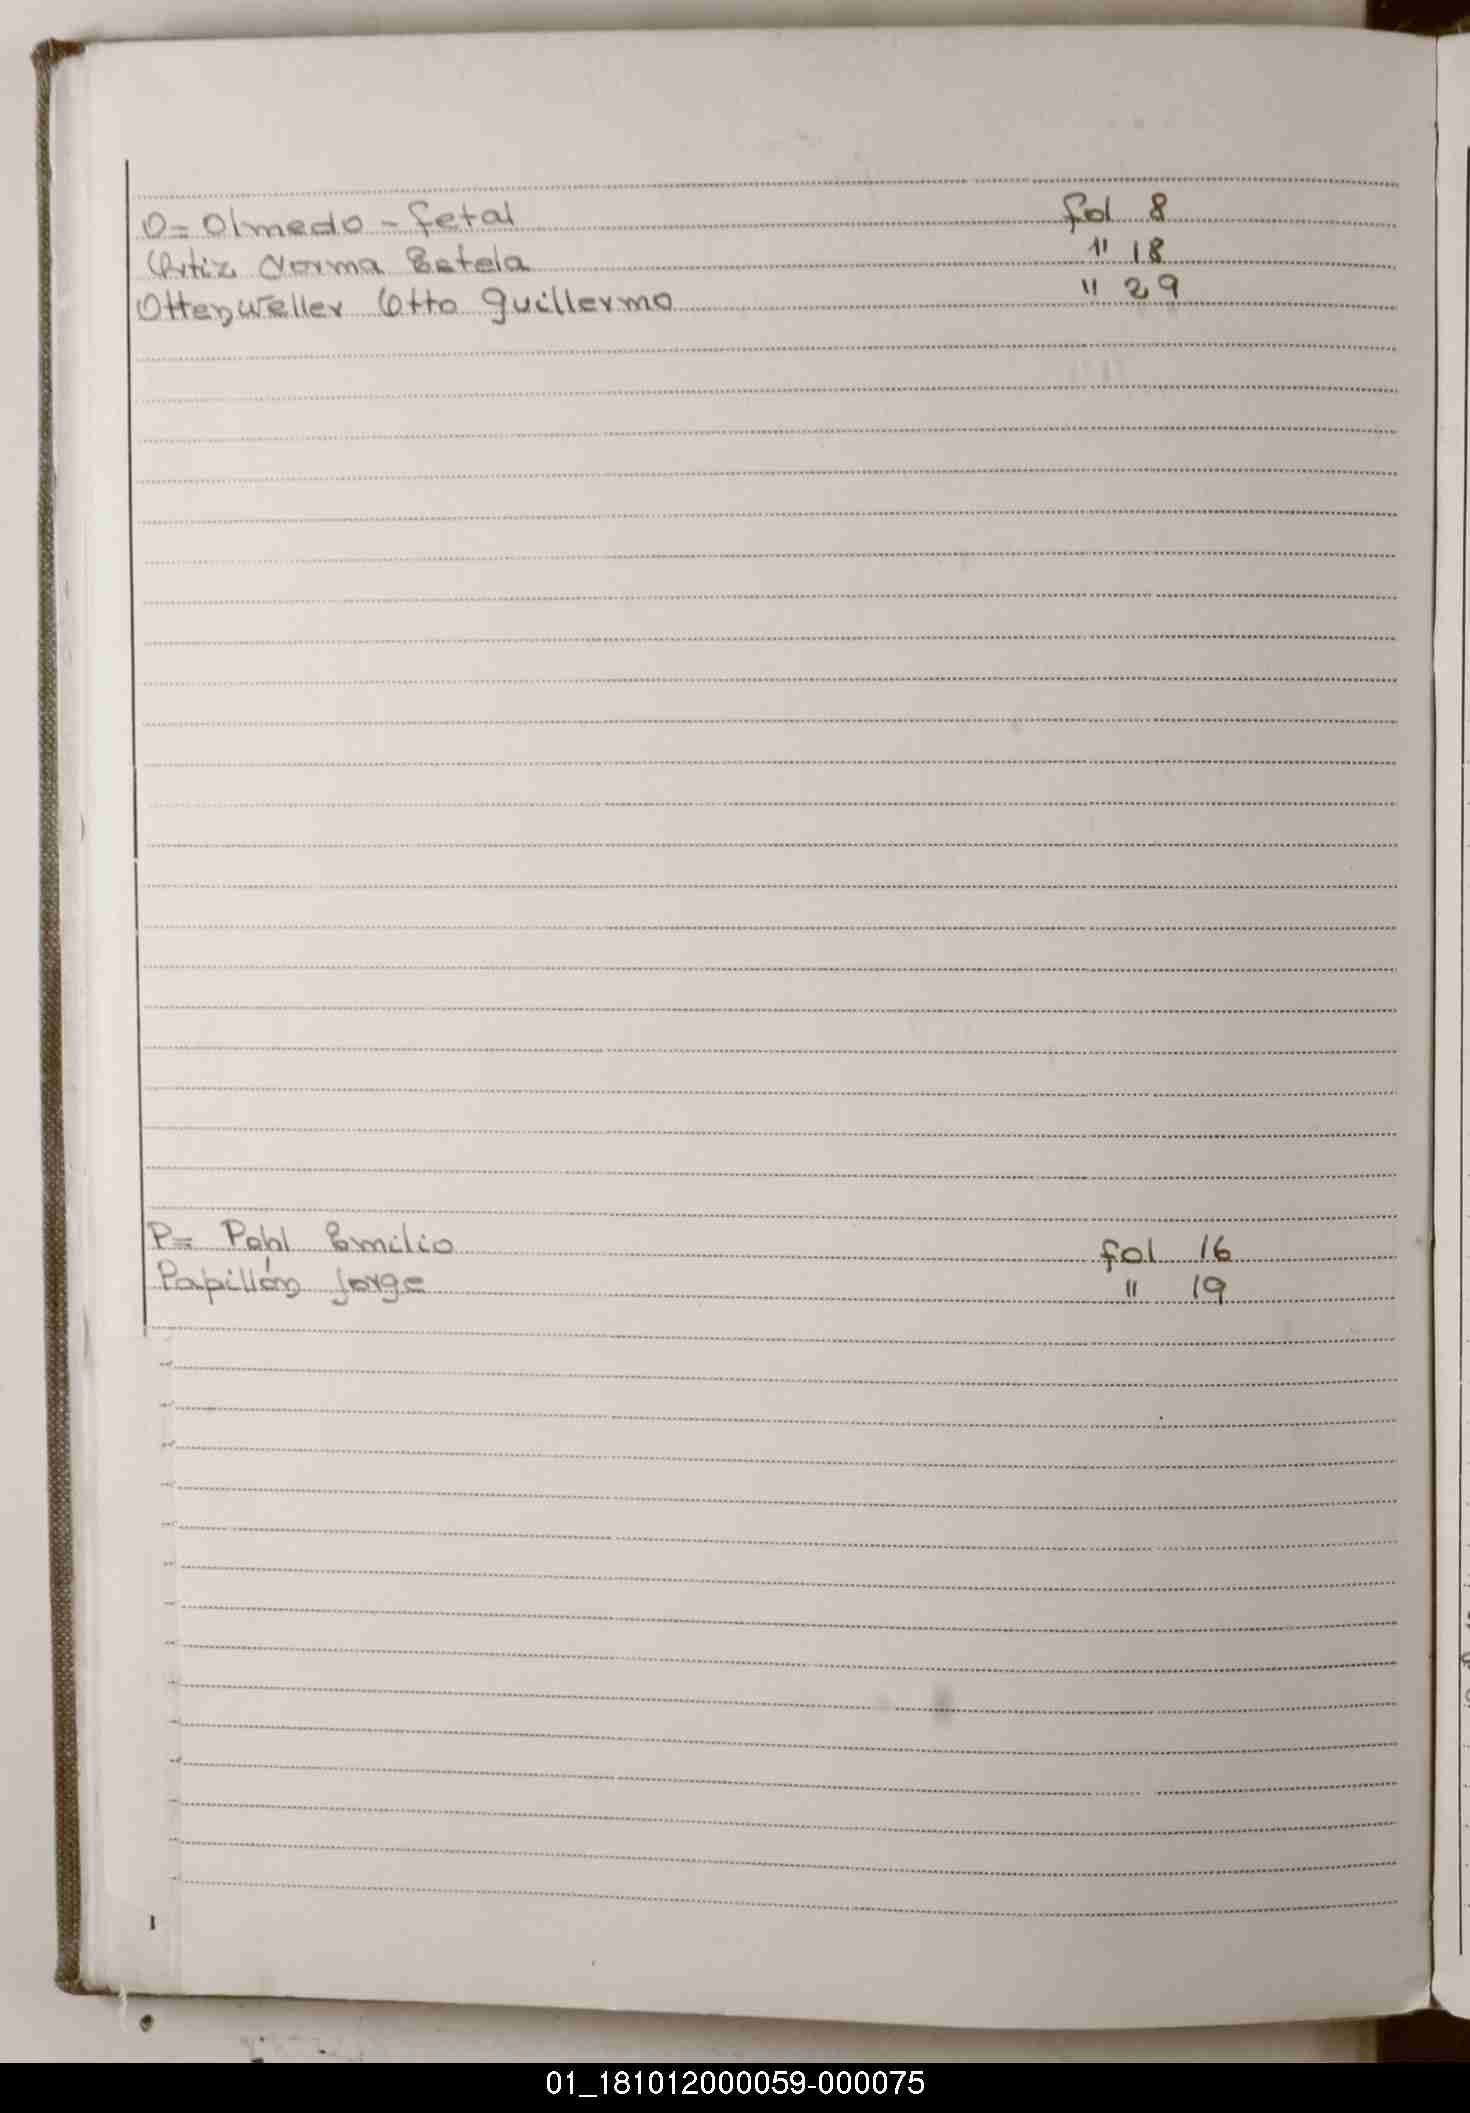 O= Olmedo - fetal fol 8
Ortiz Norma Estela " 18
Ottenweller Otto Guillermo " 29
P= Pahl Emilio fol 16
Papillón Jorge " 19
01_181012000059-000075